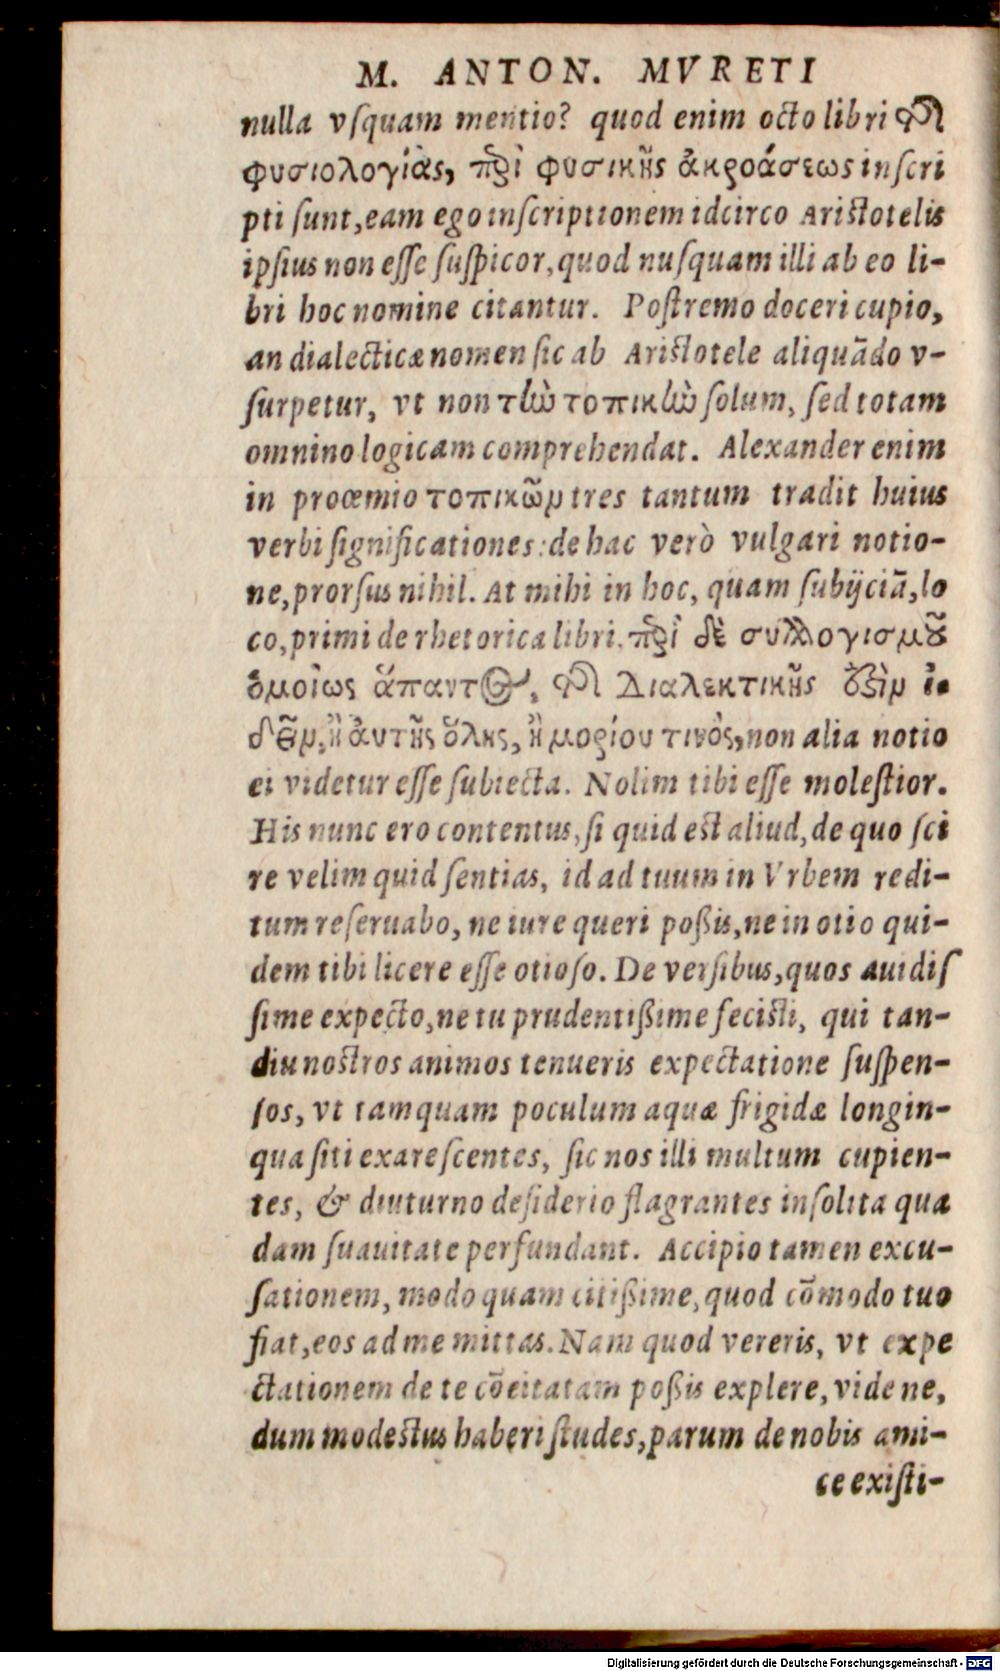 M. ANTON. MVRETI
nulla vſquam mentio? quod enim octo libri περὶ
φυσιολογίας, περὶ φυσικῆς ἀκροάσεως inſcri
pti ſunt, eam ego inſcriptionem idcirco Ariſtotelis
ipſius non eſſe ſuſpicor, quod nuſquam illi ab eo li-
bri hoc nomine citantur. Poſtremo doceri cupio,
an dialecticæ nomen ſic ab Ariſtotele aliquãdo v-
ſurpetur, vt non τὴν τοπικὴν ſolum, ſed totam
omnino logicam comprehendat. Alexander enim
in proœmio τοπικῶν tres tantum tradit huius
verbi ſignificationes: de hac verò vulgari notio-
ne, prorſus nihil. At mihi in hoc, quam ſubijciã, lo
co, primi de rhetorica libri. περὶ δὲ συλλογισμοῦ
ὁμοίως ἅπαντος, τῆς Διαλεκτικῆς ὅξὶν ἰ-
δεῖν, ἢ ἀυτῆς ὅλης, ἢ μορίου τινὸς, non alia notio
ei videtur eſſe ſubiecta. Nolim tibi eſſe moleſtior.
His nunc ero contentus, ſi quid eſt aliud, de quo ſci
re velim quid ſentias, id ad tuum in Vrbem redi-
tum reſeruabo, ne iure queri poßis, ne in otio qui-
dem tibi licere eſſe otioſo. De verſibus, quos auidiſ
ſime expecto, ne tu prudentißime feciſti, qui tan-
diu noſtros animos tenueris expectatione ſuſpen-
ſos, vt tamquam poculum aquæ frigidæ longin-
qua ſiti exareſcentes, ſic nos illi multum cupien-
tes, & diuturno deſiderio flagrantes inſolita qua
dam ſuauitate perfundant. Accipio tamen excu-
ſationem, modo quam citißime, quod cõmodo tuo
fiat, eos ad me mittas. Nam quod vereris, vt expe
ctationem de te cõcitatam poßis explere, vide ne,
dum modeſtus haberi ſtudes, parum de nobis ami-
ce exiſti-
Digitalisierung gefördert durch die Deutsche Forschungsgemeinschaft - DFG